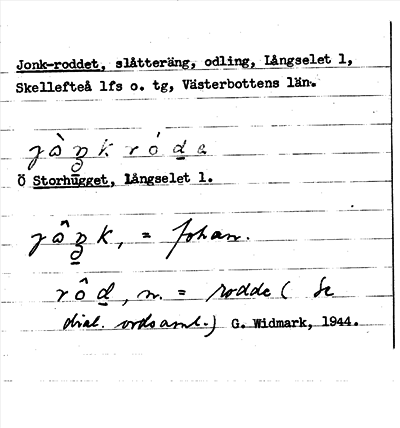 Jonk-roddet, slåtteräng, odling, Långselet 1,
Skellefteå lfs o. tg, Västerbottens län.
Ö Storhugget, Långselet 1.
= Johan.
n. = rodde ( Se
dial. ordsaml.) G. Widmark, 1944.